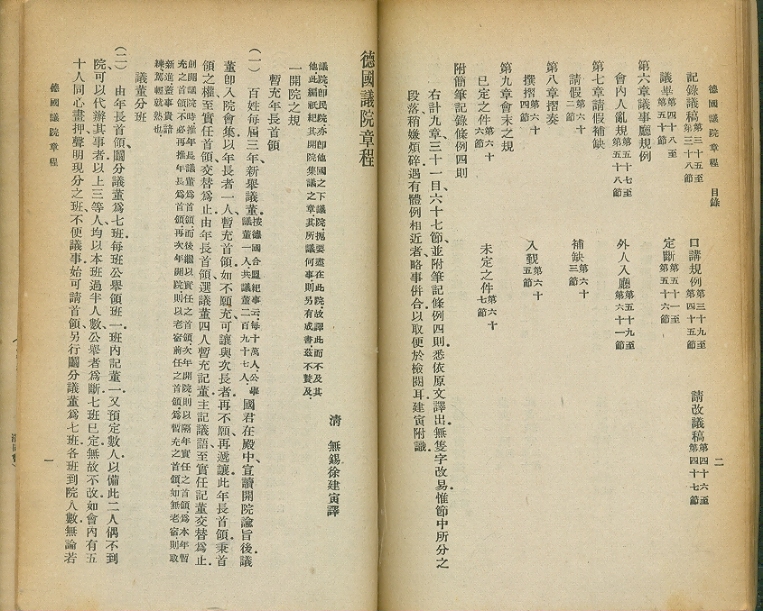 德國議院章程　目錄
二
記錄議稿第三十五至第三十八節　口講規例第三十九至第四十五節　請改議稿第四十六至第四十七節
議舉第四十八至第五十節　定斷第五十一至第五十六節
第六章議事廳規例
會內人亂規第五十七至第五十八節　外人入廳第五十九至第六十一節
第七章請假補缺
請假第六十二節　補缺第六十三節
第八章摺奏
撰摺第六十四節　入覲第六十五節
第九章會末之規
已定之件第六十六節　未定之件第六十七節
附簡筆記錄條例四則
右計九章三十一目六十七節、並附筆記條例四則悉依原文譯出、無隻字改易、惟節中所分之
段落稍嫌煩碎、遇有體例相近者、略事併合、以取便於檢閱耳、建寅附識
德國議院章程
清　無錫徐建寅譯
議院卽民院、亦卽他國之下議院、扼要盡在此院、故譯此而不及其
他、此編祇紀其開院集議之章、其所議何事、則另有成書、茲不贅及、
一開院之規
暫充年長首領
（一）　百姓每屆三年新舉議董、按德國合盟紀事云、每十萬人公舉議董一人、共議董二百九十七人、國君在殿中、宣讀開院諭旨後、議
董卽入院會集、以年長者一人、暫充首領、如不願充、可讓與次長者、再不願、再遞讓、此年長首領、秉首
領之權、至實任首領交替爲止、由年長首領選議董四人暫充記董、主記議語、至實任記董交替爲止、
創開議院時、推年長議董爲首領、而後繼以實任之首領、次年開院、則以隔年實任之首領、爲本年暫
充之首領、不必再推年長爲首領、再次年開院、則以老宿前任之首領、爲暫充之首領、如無老宿、則取
新進議董、資請
練駕輕就熟也、
議董分班
（二）　由年長首領、鬮分議董爲七班、每班公舉領班一、班內記董一、又預定數人、以備此二人偶不到
院、可以代辦其事者、以上三等人、均以本班過半人數公舉者爲斷、七班已定、無故不改、如會內有五
十人同心畫押、聲明現分之班不便議事、始可請首領另行鬮分議董爲七班、各班到院人數、無論若
德國議院章程
一